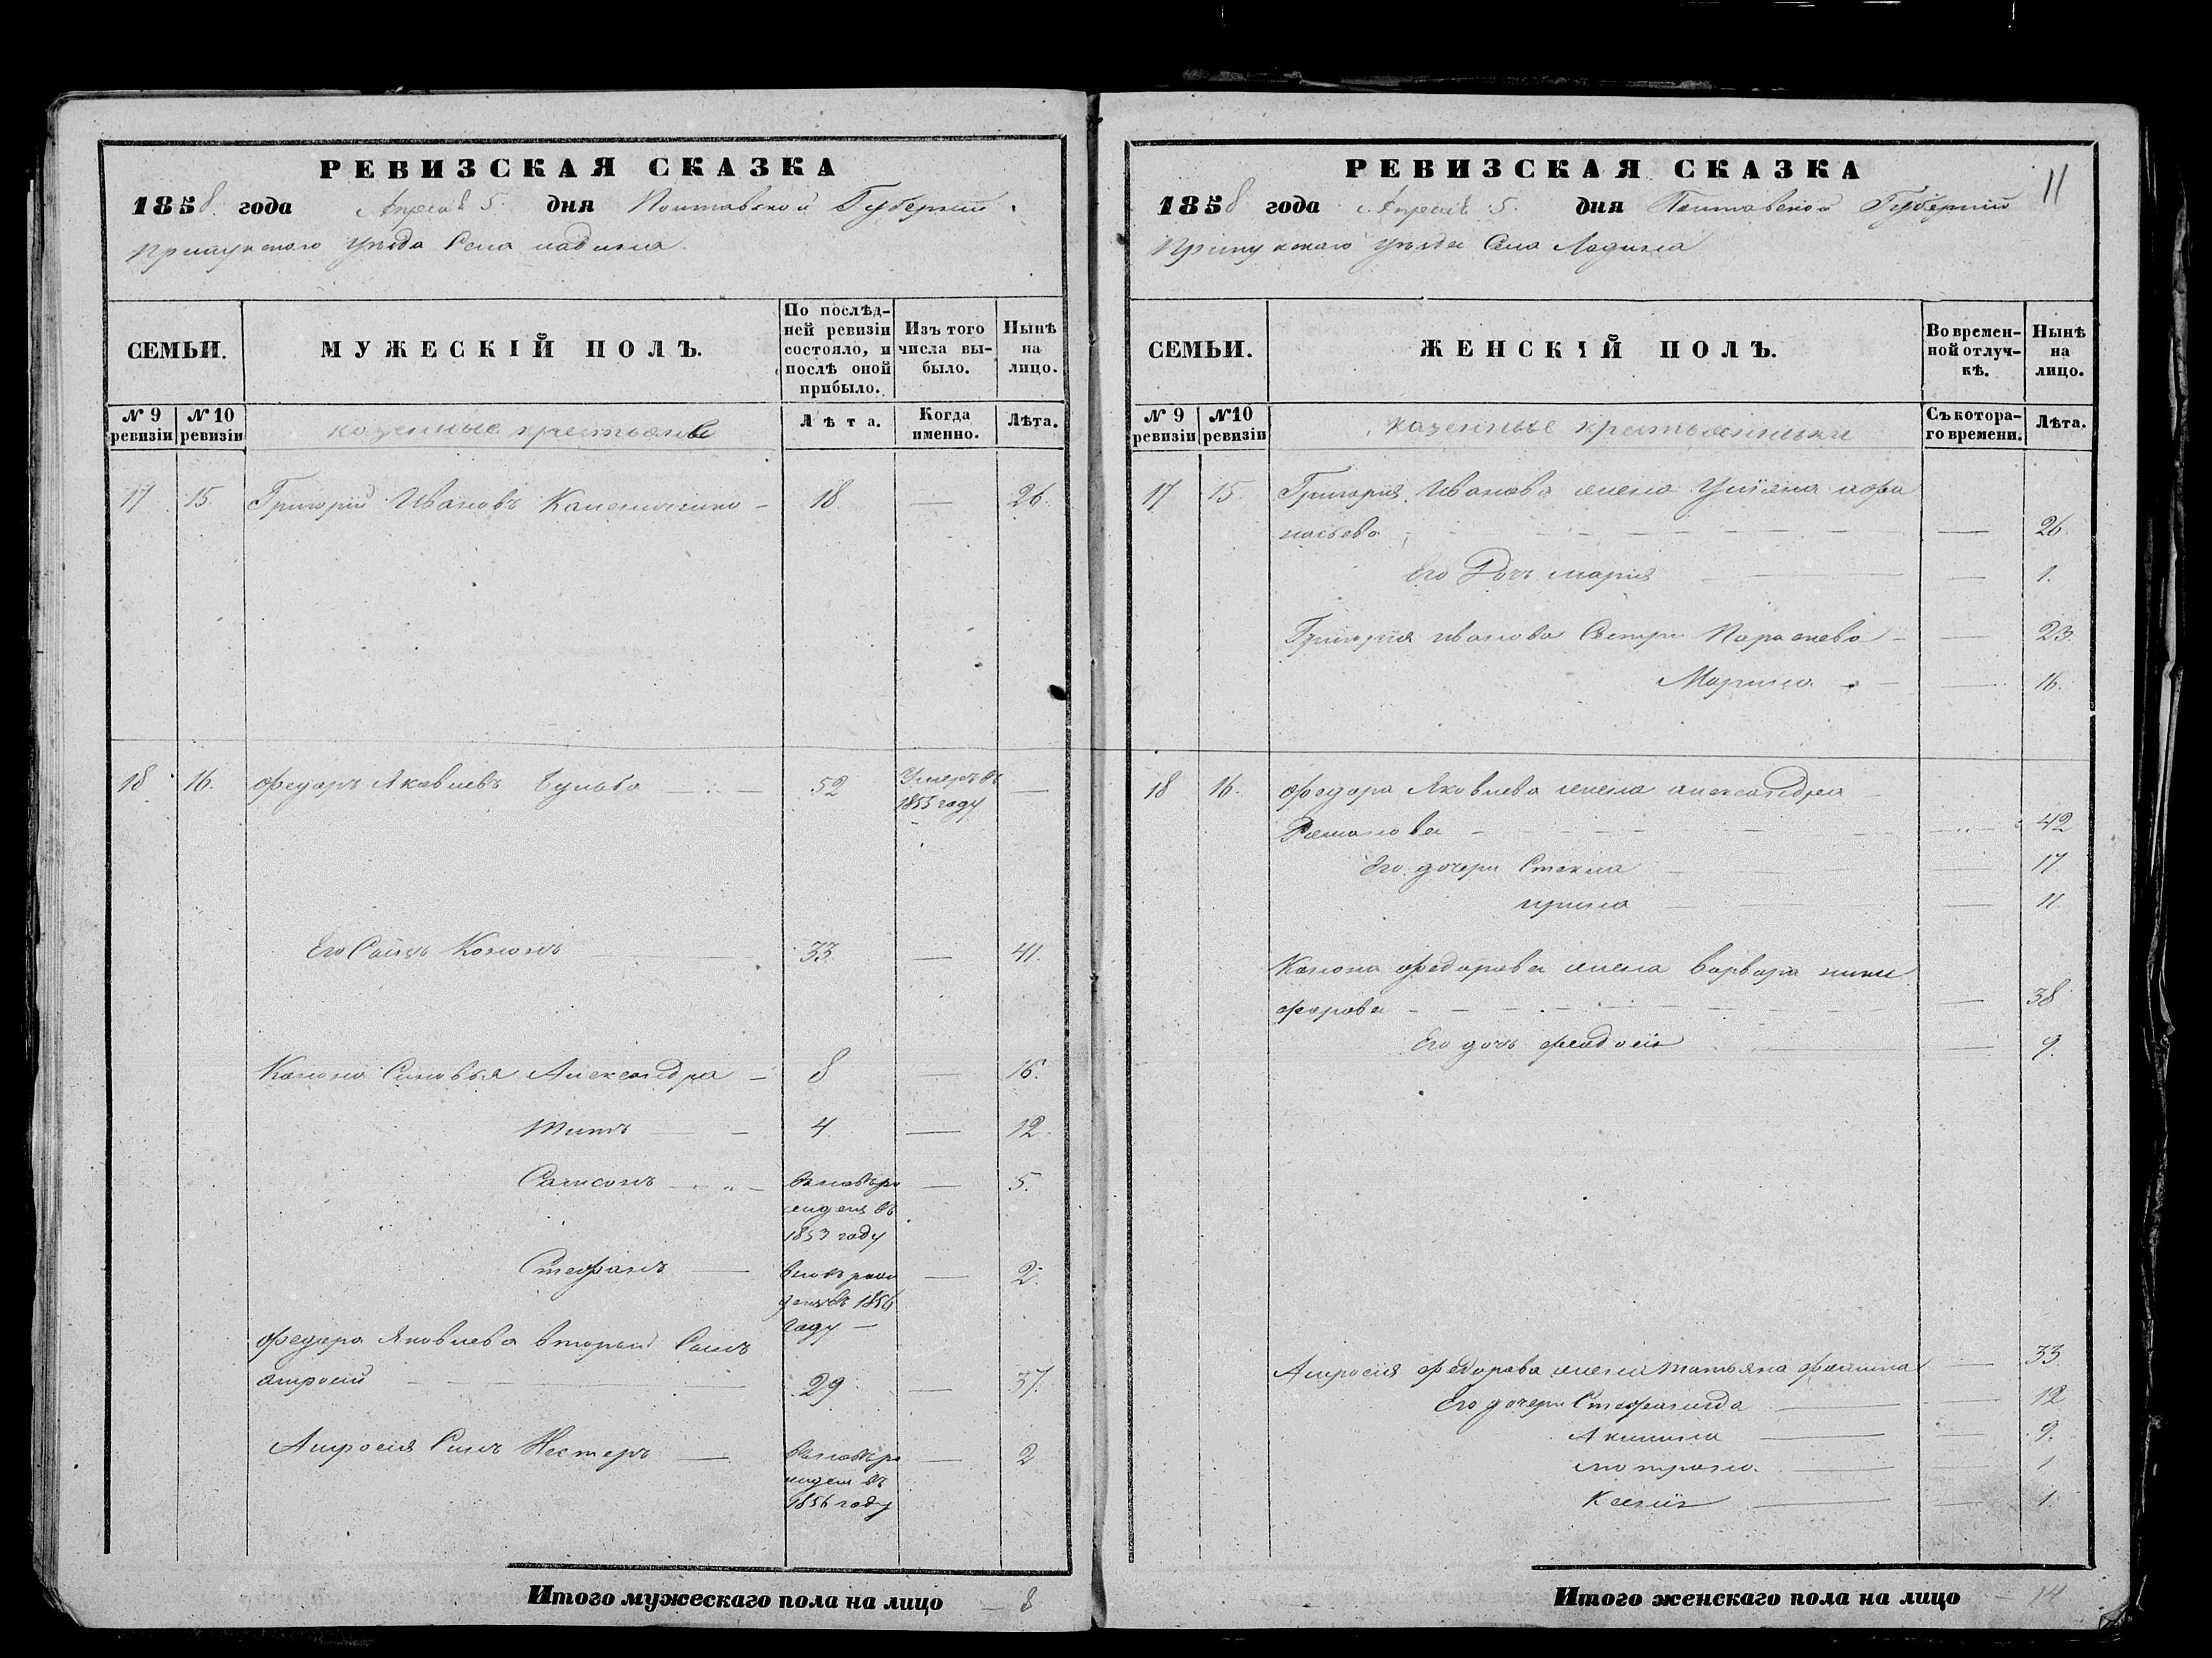 РЕВИЗСКАЯ СКАЗКА
1858 года Апреля 5 дня Полтавской Губерніи
Прилукского уѣзда Села ладина
СЕМЬИ.
МУЖЕСКІЙ ПОЛЪ.
По послѣд-
ней ревизіи
состояло, и
послѣ оной
прибыло.
Изъ того
числа вы-
было.
Нынѣ
на
лицо.
№ 9
ревизіи
№ 10
ревизіи
казенные крестьяне
Лѣта.
Когда
именно.
Лѣта.
17 15 Григорій Ивановъ — 18 — 26
18 16. Федоръ Яковлевъ — 52 Умеръ въ —
1855 году
Его Сынъ Кононъ — 33 — 41.
Конона Сыновья Александра — 8 — 16.
Титъ — 4 — 12.
Самсонъ — вновь ро — 5.
жденъ въ
1853 году
Стефанъ — вновь рож — 2.
денъ въ 1856
году —
Федора Яковлева вторый Сынъ
амросій — 29 — 37.
Амросія Сынъ Нестеръ — вновь ро — 2
жденъ въ
1856 году
Итого мужескаго пола на лицо — 8
РЕВИЗСКАЯ СКАЗКА
11
1858 года Апреля 5. дня Полтавской Губерніи
Прилукскаго уѣзда Села Ладина
СЕМЬИ.
ЖЕНСКІЙ ПОЛЪ.
Во времен-
ной отлуч-
кѣ.
Нынѣ
на
лицо.
№ 9
ревизіи
№10
ревизіи
казенные крестьянки
Съ котора-
го времени.
Лѣта.
17 15. Григорія Иванова жена Уліяна афа
насьева — — 26
Его Дочъ марія — — 1.
Григорія иванова Сестри Параскева — — 23.
Марина — — 16.
18 16. Федора Яковлева жена александра
Романова — — 42
Его дочери Стекла — — 17
ирина — — 11.
Конона Федорова жена варвара ники
форова — — 38
Его дочь феодосія — — 9.
Амросія Федорова жена татьяна фомина — 33.
Его дочери Стефанида — — 12
Акилина — — 9.
мотрона — — 1
Ксенія — — 1.
Итого женскаго пола на лицо — 14